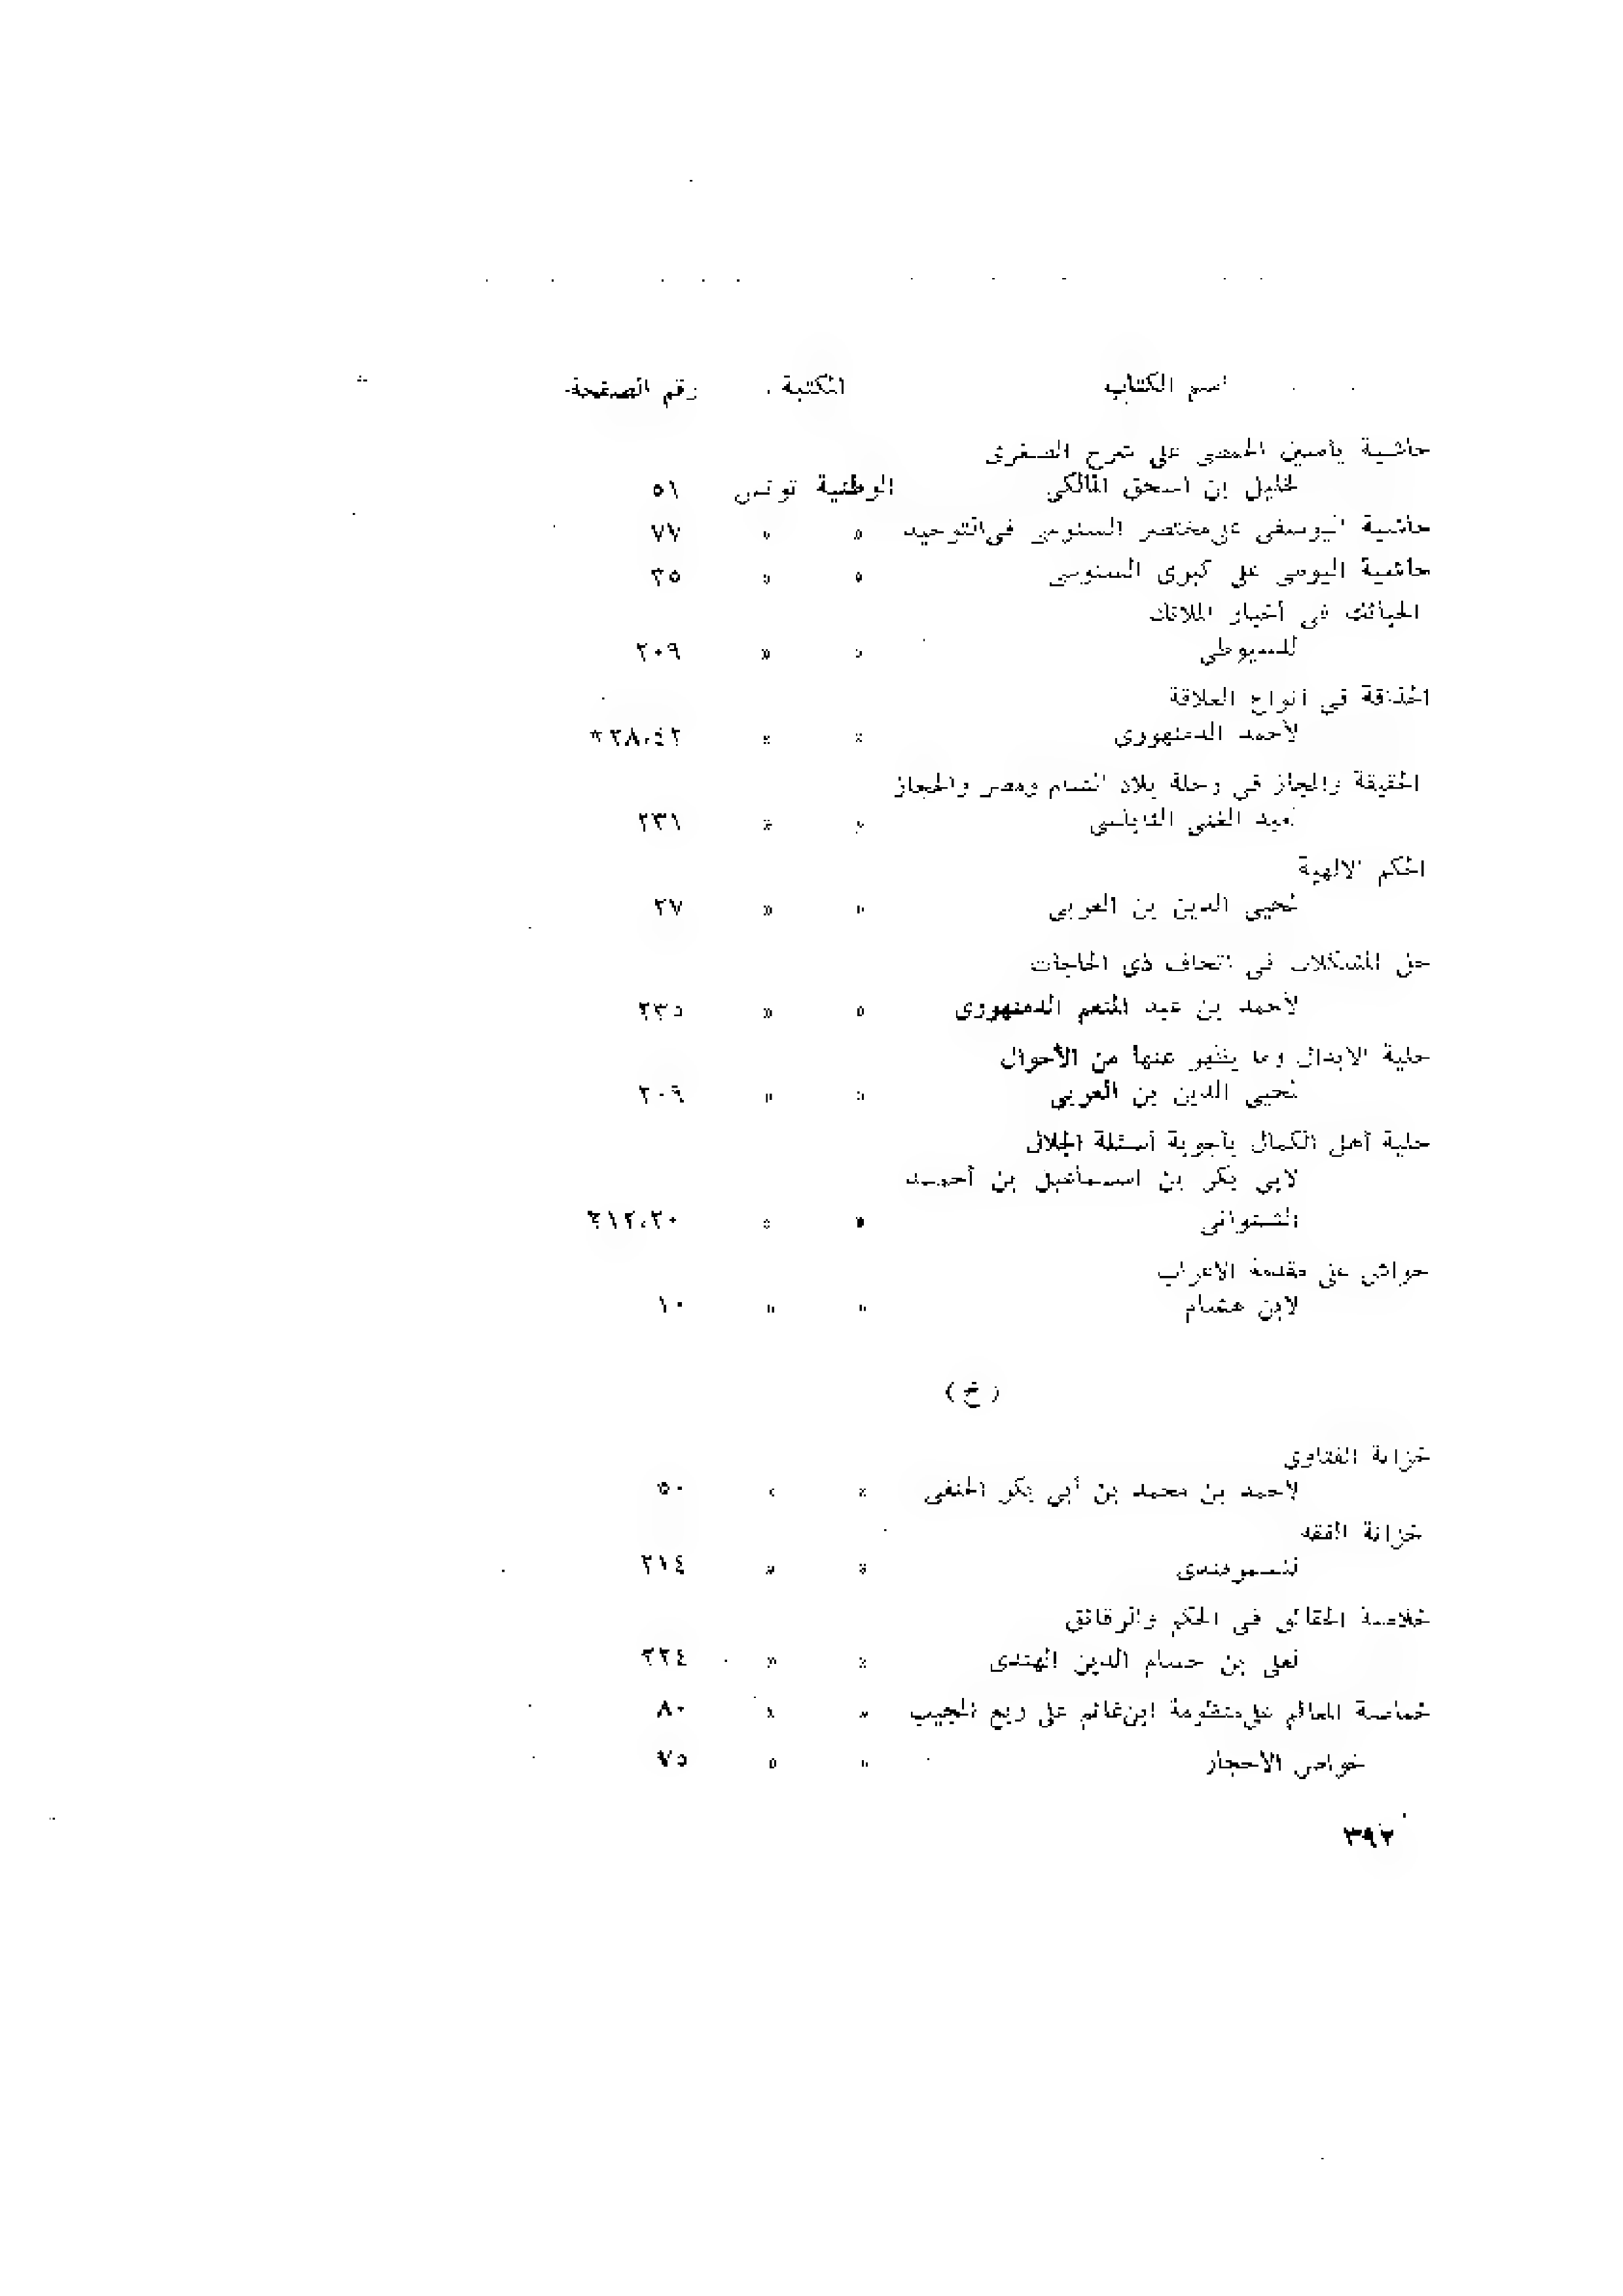 اسم الكتاب المكتبة رقم الصفحة
حاشية ياسين الحمصى على شرح الصغرى
لخليل بن اسحق المالكى الوطنية تونس ٥١
حاشية اليوسفى على مختصر السنوسى فى التوحيد » » ٧٧
حاشية اليوسى على كبرى السنوسى » » ٣٥
الحبائك فى أخبار الملائك
للسيوطى » » ٢٠٩
الحذاقة فى أنواع العلاقة
لأحمد الدمنهورى » »
الحقيقة والمجاز فى رحلة بلاد الشام ومصر والحجاز
لعبد الغنى النابلسى » » ٢٣١
الحكم الالهية
لمحيى الدين بن العربى » » ٢٧
حل المشكلات فى اتحاف ذى الحاجات
لأحمد بن عبد المنعم الدمنهورى » » ٢٣٥
حلية الابدال وما يظهر عنها من الأحوال
لمحيى الدين بن العربى » » ٢٠٩
حلية أهل الكمال بأجوبة أسئلة الجلال
لابى بكر بن اسماعيل بن أحمد
الشنوانى » » ٢١٢،٢٠
حواش على مقدمة الاعراب
لابن هشام » » ١٠
( خ )
خزانة الفتاوى
لاحمد بن محمد بن أبى بكر الحنفى » » ٥٠
خزانة الفقه
للسمرقندى » » ٢١٤
خلاصة الحقائق فى الحكم والرقائق
لعلى بن حسام الدين الهندى » » ٢٢٤
المعالم على منظومة ابن غانم على ربع المجيب » » ٨٠
خواص الاحجار » » ٧٥
٣٩٢